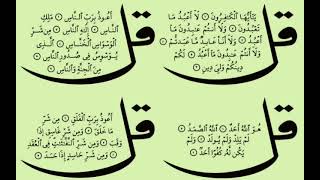 قُلْ
يَٰٓأَيُّهَا ٱلْكَٰفِرُونَ ۝ لَآ أَعْبُدُ مَا
تَعْبُدُونَ ۝ وَلَآ أَنتُمْ عَٰبِدُونَ مَآ
أَعْبُدُ ۝ وَلَآ أَنَا۠ عَابِدٌ مَّا عَبَدتُّمْ ۝
وَلَآ أَنتُمْ عَٰبِدُونَ مَآ أَعْبُدُ ۝ لَكُمْ
دِينُكُمْ وَلِىَ دِينِ ۝
قُلْ
أَعُوذُ بِرَبِّ ٱلنَّاسِ ۝ مَلِكِ
ٱلنَّاسِ ۝ إِلَٰهِ ٱلنَّاسِ ۝ مِن شَرِّ
ٱلْوَسْوَاسِ ٱلْخَنَّاسِ ۝ ٱلَّذِى
يُوَسْوِسُ فِى صُدُورِ ٱلنَّاسِ ۝
مِنَ ٱلْجِنَّةِ وَٱلنَّاسِ ۝
قُلْ
هُوَ ٱللَّهُ أَحَدٌ ۝ ٱللَّهُ ٱلصَّمَدُ ۝
لَمْ يَلِدْ وَلَمْ يُولَدْ ۝ وَلَمْ
يَكُن لَّهُۥ كُفُوًا أَحَدٌۢ ۝
قُلْ
أَعُوذُ بِرَبِّ ٱلْفَلَقِ ۝ مِن شَرِّ
مَا خَلَقَ ۝ وَمِن شَرِّ غَاسِقٍ إِذَا
وَقَبَ ۝ وَمِن شَرِّ ٱلنَّفَّٰثَٰتِ فِى ٱلْعُقَدِ
۝ وَمِن شَرِّ حَاسِدٍ إِذَا حَسَدَ ۝